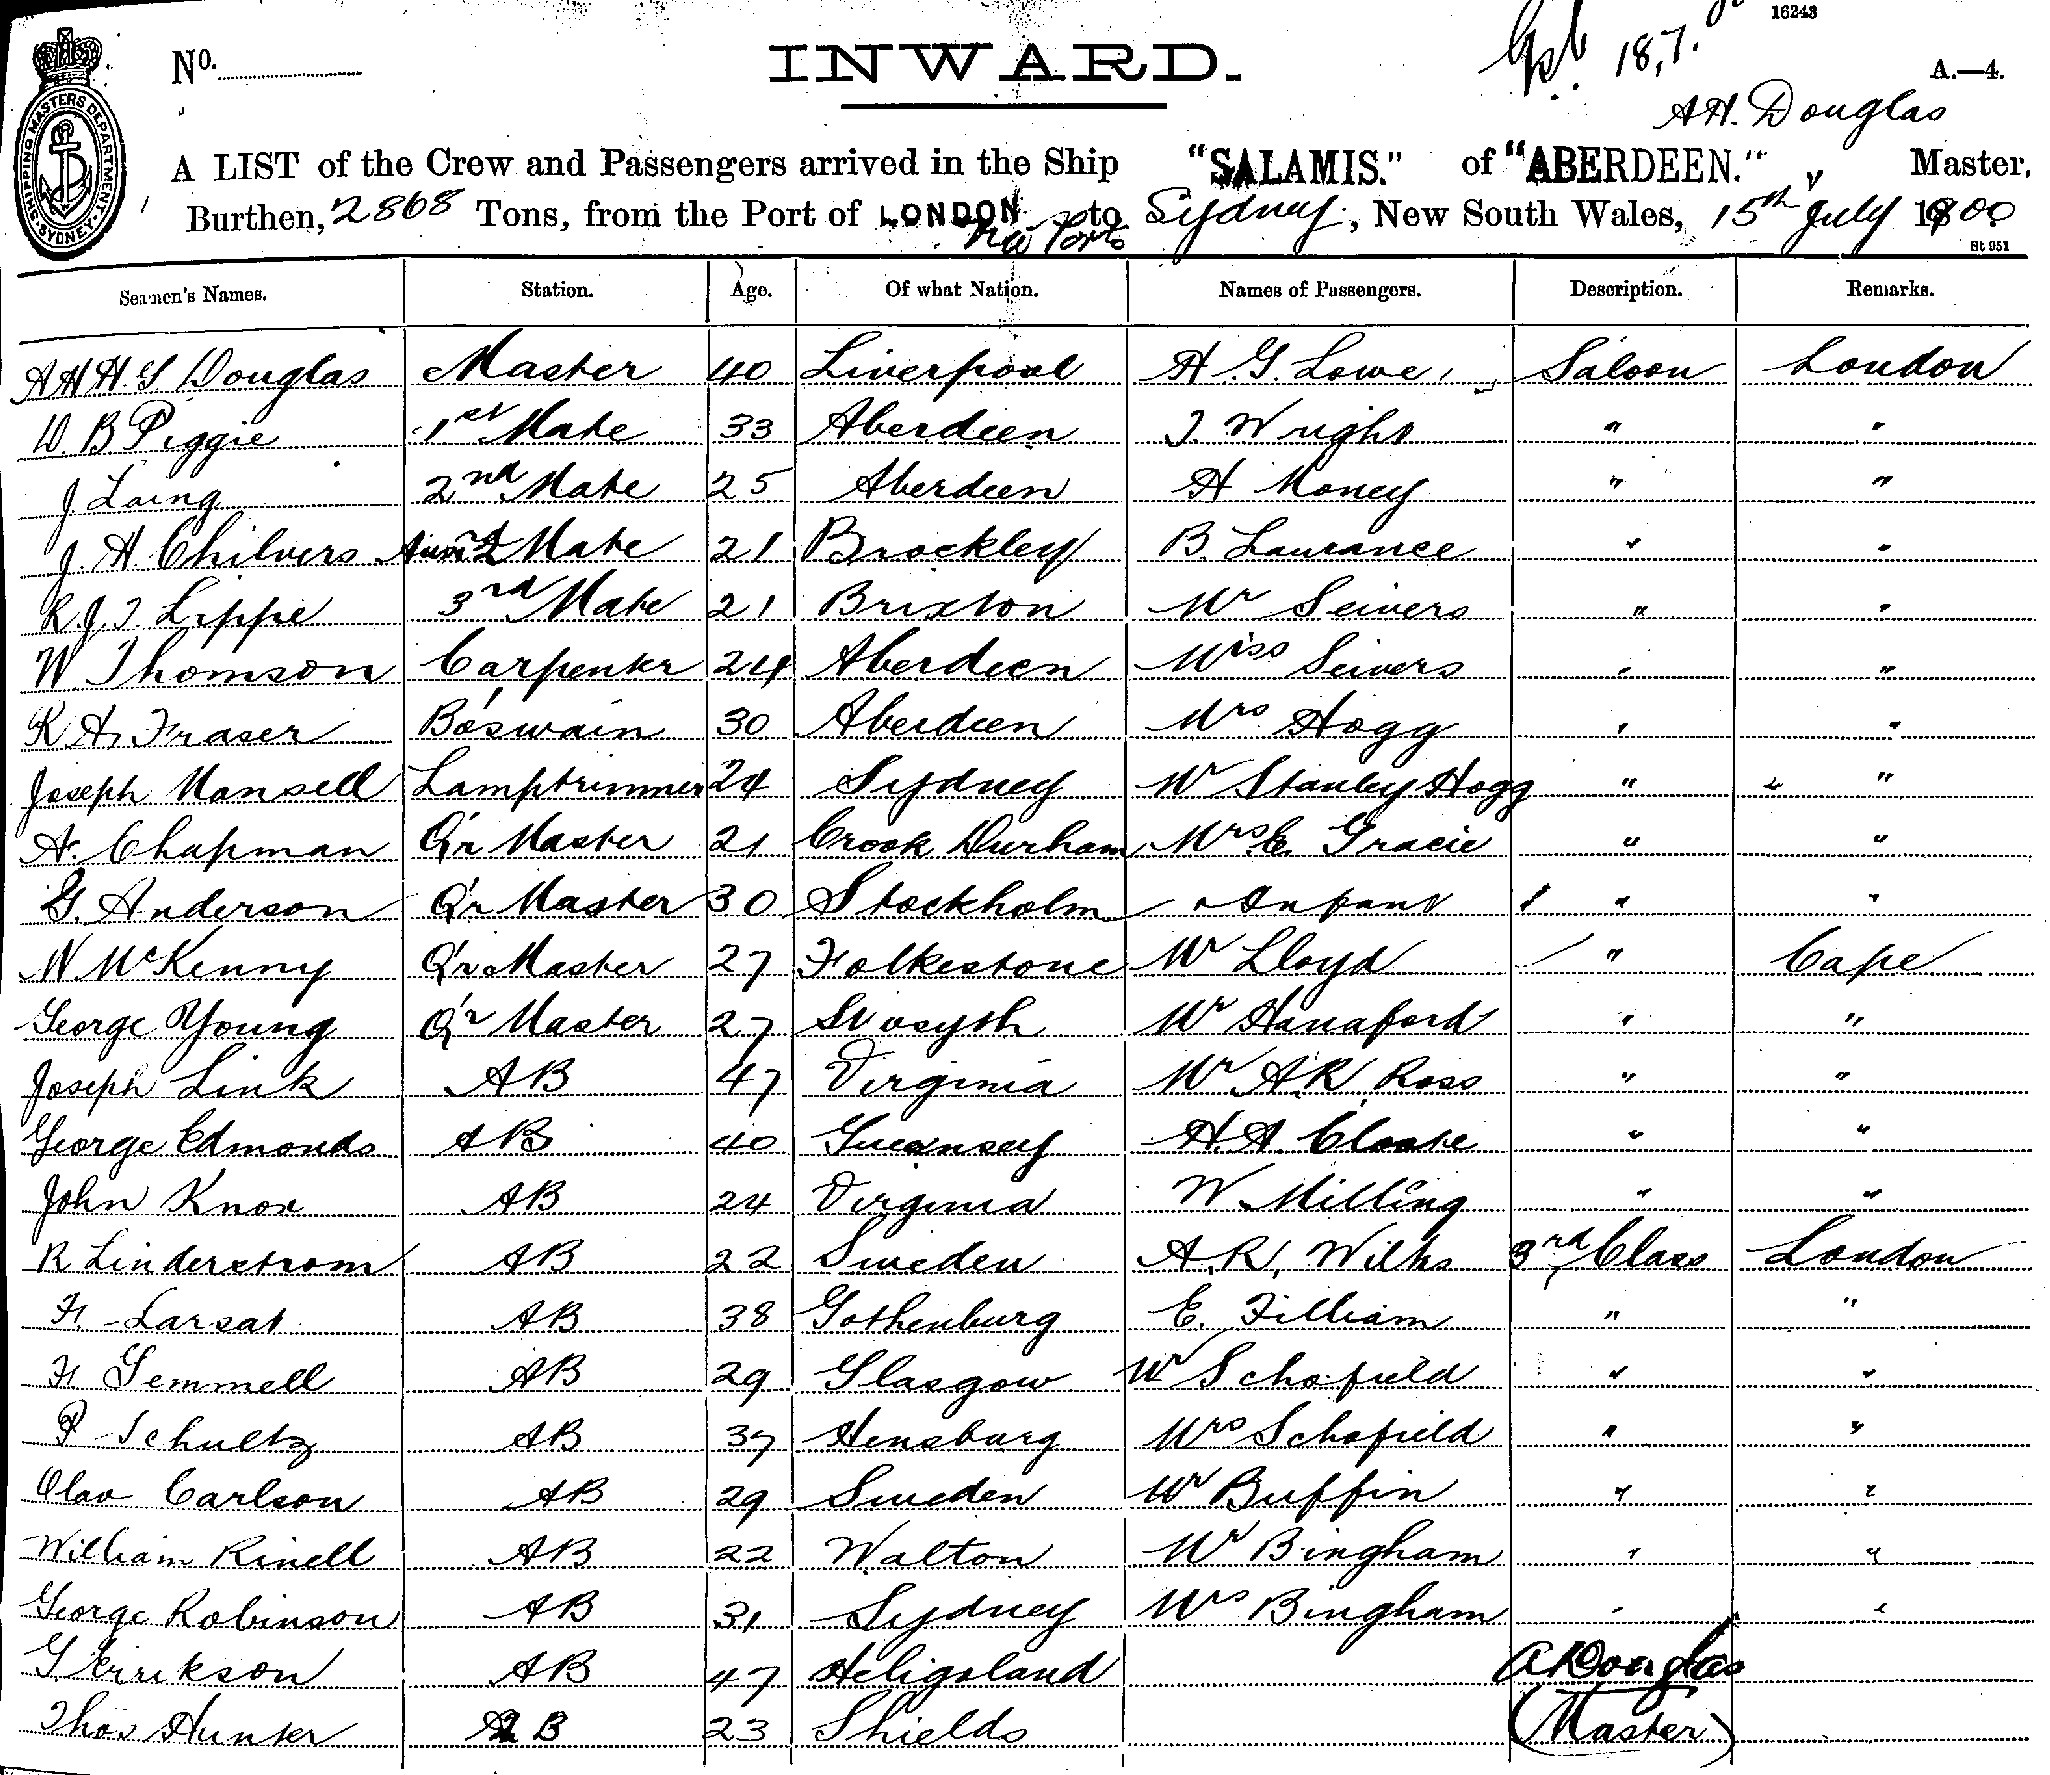 16243
Nº.
INWARD.
18,7.
A.—4.
AH. Douglas
SHIPPING MASTERS DEPARTMENT. SYDNEY
A LIST of the Crew and Passengers arrived in the Ship "SALAMIS." of "ABERDEEN." Master,
Burthen, 2868 Tons, from the Port of LONDON via Ports to Sydney, New South Wales, 15th July 1900
St 951
Seamen's Names. Station. Age. Of what Nation. Names of Passengers. Description. Remarks.
A H H S Douglas Master 40 Liverpool H. G. Lowe, Saloon London
W. B Piggie 1st Mate 33 Aberdeen J. Wright " "
J Laing 2nd Mate 25 Aberdeen H Money " "
J. H Chilvers 2 Mate 21 Brockley B. Laurance " "
R. J. T Lippe 3rd Mate 21 Brixton Mr Seivers " "
W Thomson Carpenter 24 Aberdeen Miss Seivers " "
R A Fraser Bo'swain 30 Aberdeen Mrs Hogg " "
Joseph Mansell Lamptrimmer 24 Sydney Mr Stanley Hogg " " "
A. Chapman Q'r Master 21 Crook Durham Mrs E. Gracie " "
G. Anderson Q'r Master 30 Stockholm " Infant " "
W McKenny Q'r Master 27 Folkestone Mr Lloyd " Cape
George Young Q'r Master 27 St Osyth Mr Hanaford " "
Joseph Link AB 47 Virginia Mr A.R. Ross " "
George Edmonds AB 40 Guernsey H. A. Cloake " "
John Knox AB 24 Virginia W. Milling " "
R Linderstrom AB 22 Sweden A. R. Wilks 3rd Class London
F. Larsat AB 38 Gothenburg E. Filliam " "
F Gemmell AB 29 Glasgow Mr Schofield " "
P Schultz AB 37 Hensburg Mrs Schofield " "
Olav Carlson AB 29 Sweden Mr Buffin " "
William Rinell AB 22 Walton Mr Bingham " "
George Robinson AB 31 Sydney Mrs Bingham " "
G Errikson AB 47 Heligoland A H Douglas
Thos Hunter AB 23 Shields (Master)